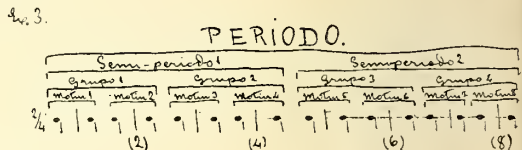 Ex. 3.
PERIODO.
Semi-periodo 1 Semiperiodo 2
Grupo 1 Grupo 2 Grupo 3 Grupo 4
motivo 1 motivo 2 motivo 3 motivo 4 motivo 5 motivo 6 motivo 7 motivo 8
2/4
(2) (4) (6) (8)